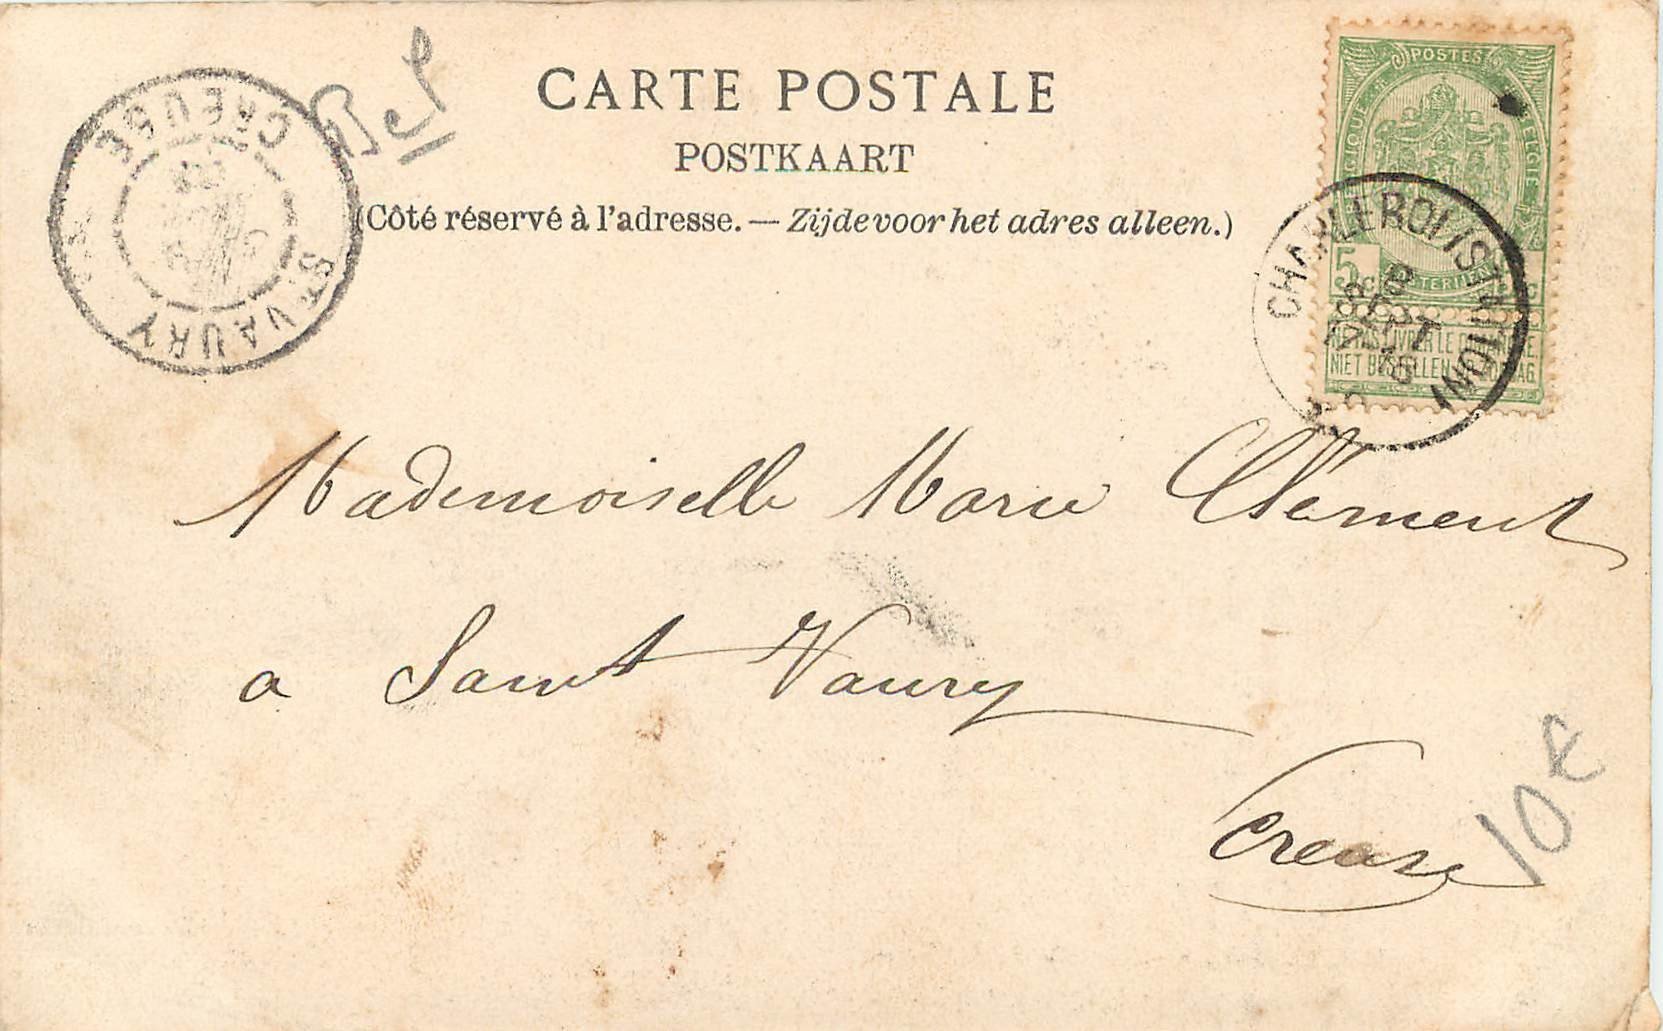 CARTE POSTALE
POSTKAART
(Côté réservé à l'adresse. — Zijde voor het adres alleen.)
Bel
CREUSE
ST VAURY
POSTES
BELGIË
5c
NE PAS LIVRER LE DIMANCHE
NIET BESTELLEN OP ZONDAG.
CHARLEROI (STATION)
Mademoiselle Marie Clément
a Saint Vaury
Creuse
10€